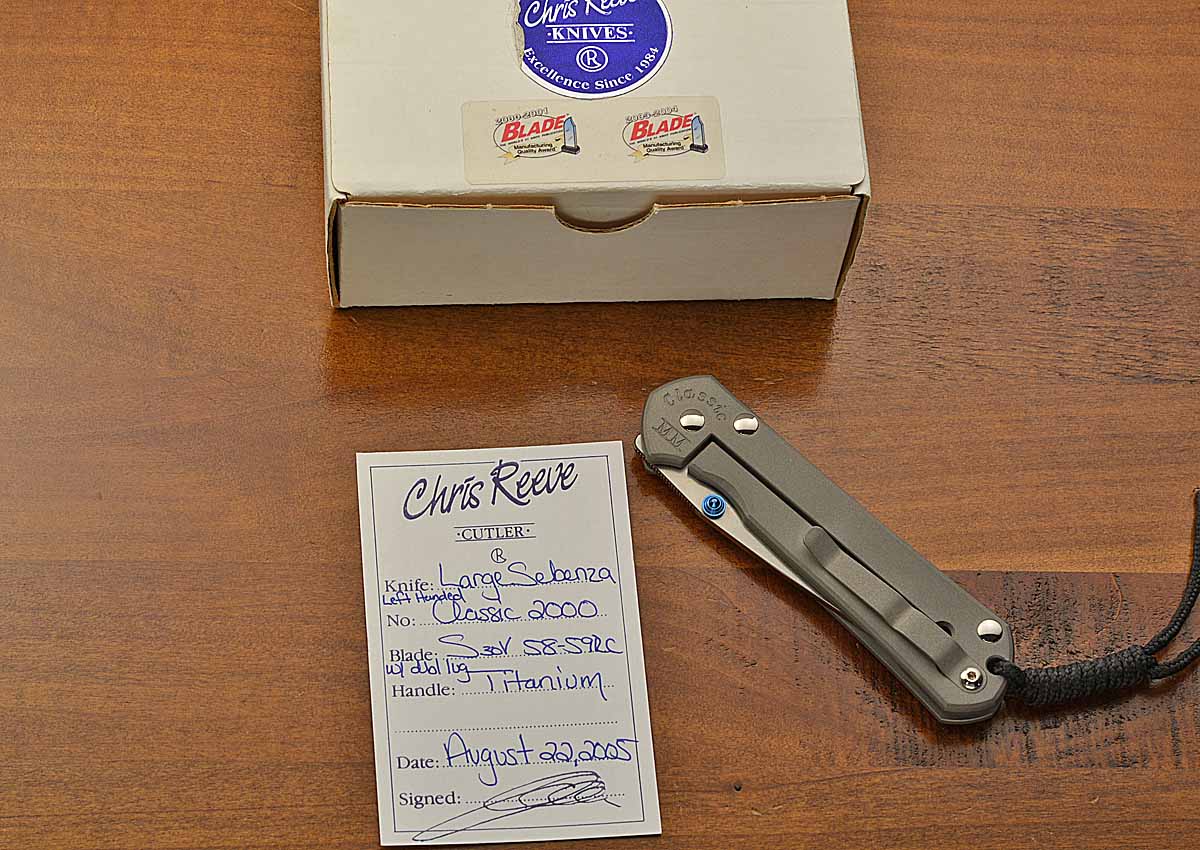 Chris Reeve
·KNIVES·
®
Excellence Since 1984
2000-2001
BLADE
Manufacturing
Quality Award
2003-2004
BLADE
Manufacturing
Quality Award
Classic
MM
Chris Reeve
·CUTLER·
®
Knife: Large Sebenza
Left Handed
No: Classic 2000
Blade: S30V 58-59RC
w/ dubl lug
Handle: Titanium
Date: August 22, 2005
Signed: